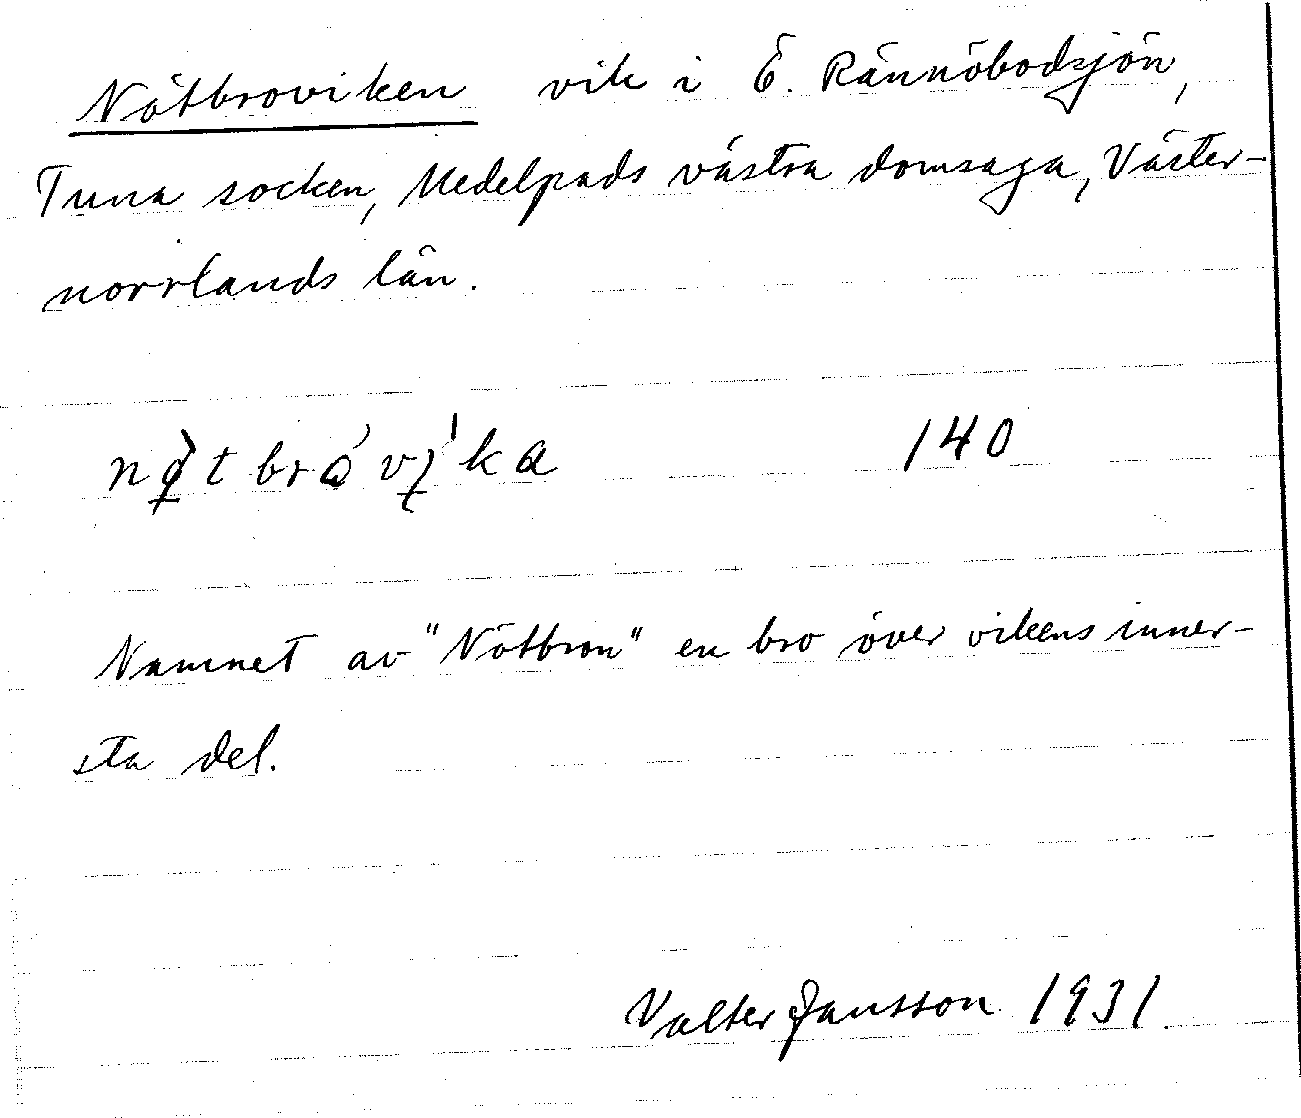 Nötbroviken vik i Ö. Rännöbodsjön,
Tuna socken, Medelpads västra domsaga, Väster-
norrlands län.
140
Namnet av "Nötbron" en bro över vikens inner-
sta del.
Valter Jansson 1931